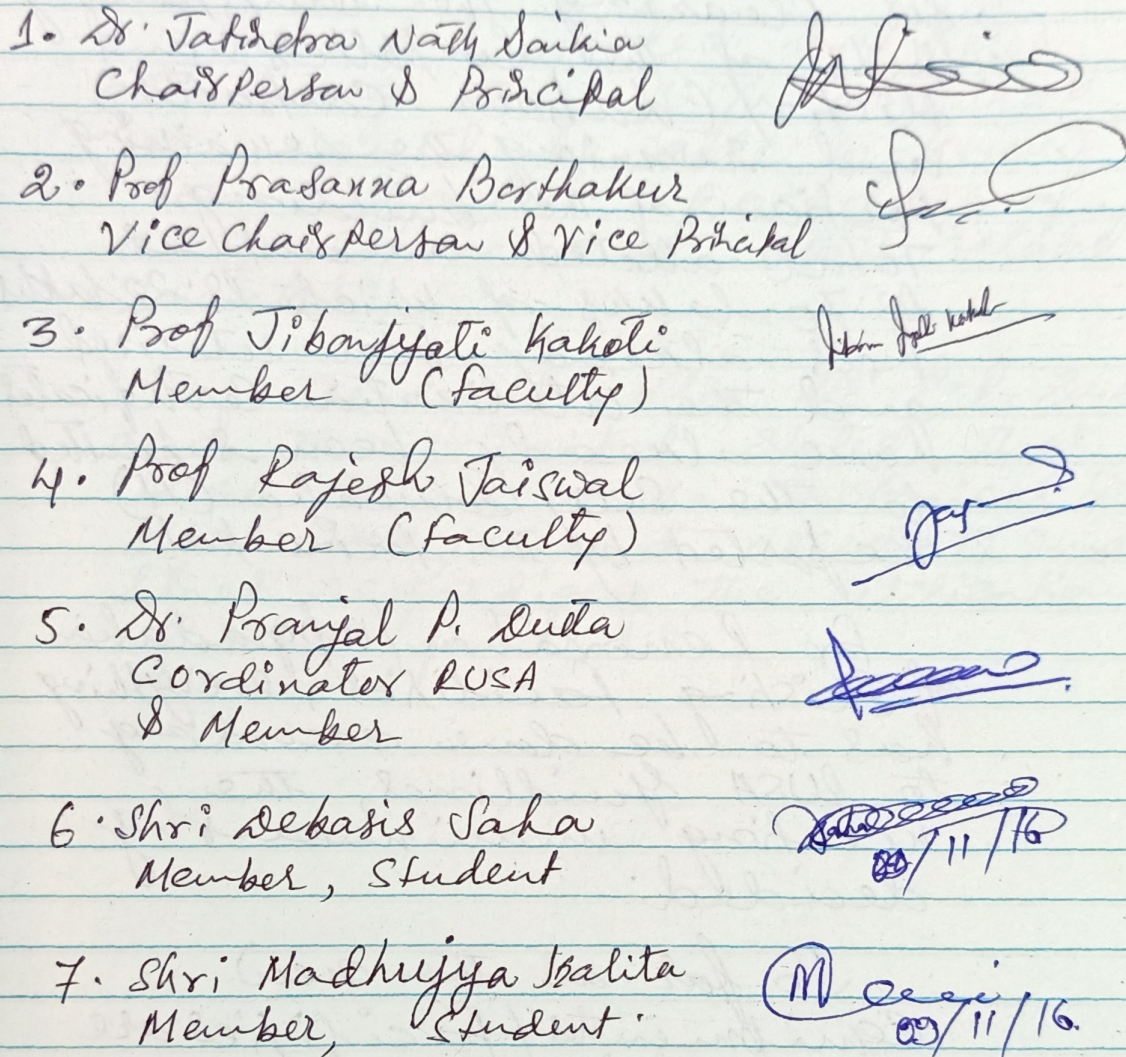 1. Dr. Jatindra Nath Saikia
Chairperson & Principal
2. Prof Prasanna Borthakur
Vice Chairperson & Vice Principal
3. Prof Jibonjyoti Kakoti
Jibon Jyoti Kakoti
Member (faculty)
4. Prof Rajesh Jaiswal
Member (faculty)
5. Dr. Pranjal P. Dutta
Cordinator RUSA
& Member
6. Shri Debasis Saha
Member, Student
/11/16
7. Shri Madhujya Kalita
Member, Student
09/11/16.